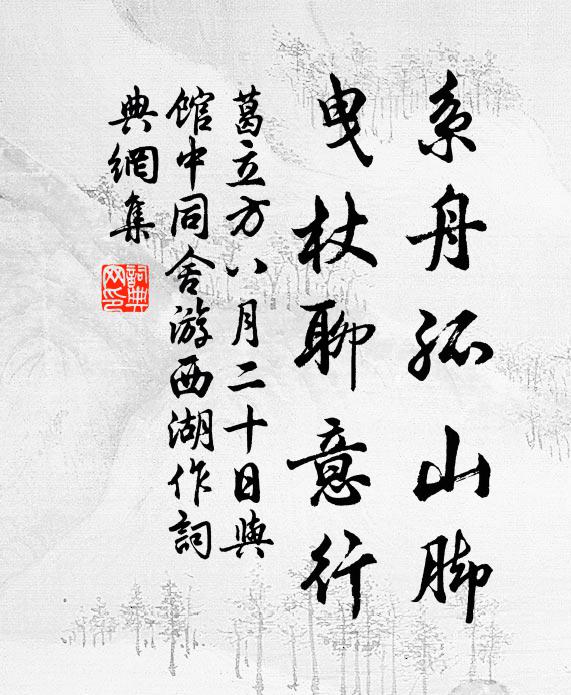 系舟孤山脚
曳杖聊意行
葛立方八月二十日與
館中同舍游西湖作詞
典網集
詞典網印